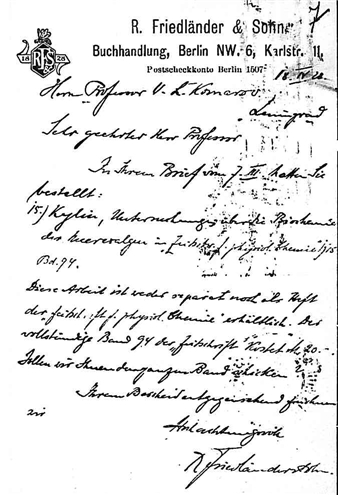 7
R. Friedländer & Sohn
Buchhandlung, Berlin NW. 6, Karlstr. 11.
Postscheckkonto Berlin 1507
RFS
18 28
Herrn Professor V. L. Komarov
Leningrad
Sehr geehrter Herr Professor
In Ihrem Brief vom 7. III. hatten Sie
bestellt:
15) Kylin, Untersuchungen über die Biochemie
der Meeresalgen in f. physiol. Chemie 1915
Bd. 94.
Diese Arbeit ist weder separat noch als Heft
der Zeitschrift f. physiol. Chemie erhältlich. Der
vollständige Band 94 der Zeitschrift kostet Mk 20.-
Sollen wir Ihnen den ganzen Band schicken
Ihrem Bescheid entgegensehend zeichnen
wir
Hochachtungsvoll
R Friedländer & Sohn